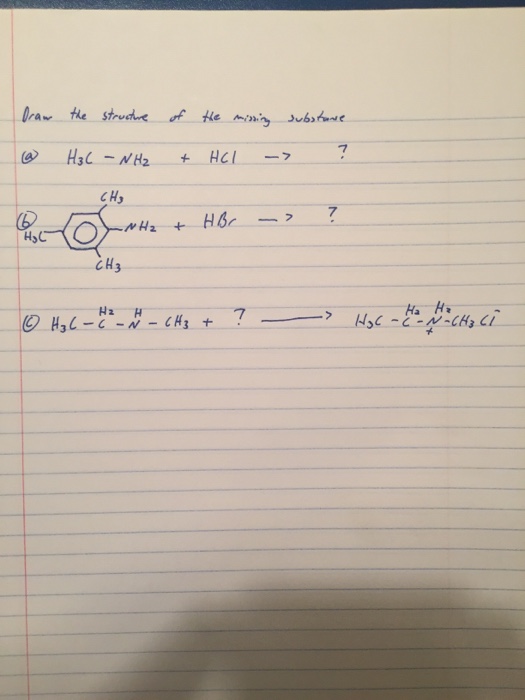 Draw the structure of the missing substance
(a) H3C - NH2 + HCl -> ?
CH3
(b) H3C -NH2 + HBr -> ?
CH3
H2 H H2 H2
(c) H3C - C - N - CH3 + ? -> H3C - C - N - CH3 Cl-
+